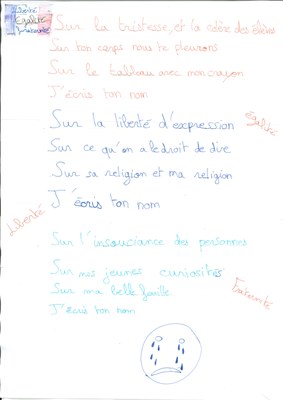 Liberté
Égalité
Fraternité
Sur la tristesse, et la colère des élèves
Sur ton corps nous te pleurons
Sur le tableau avec mon crayon
J'écris ton nom
Égalité
Sur la liberté d'expression
Sur ce qu'on a le droit de dire
Sur sa religion et ma religion
J'écris ton nom
Liberté
Sur l'insouciance des personnes
Sur nos jeunes curiosités
Sur ma belle famille
Fraternité
J'écris ton nom